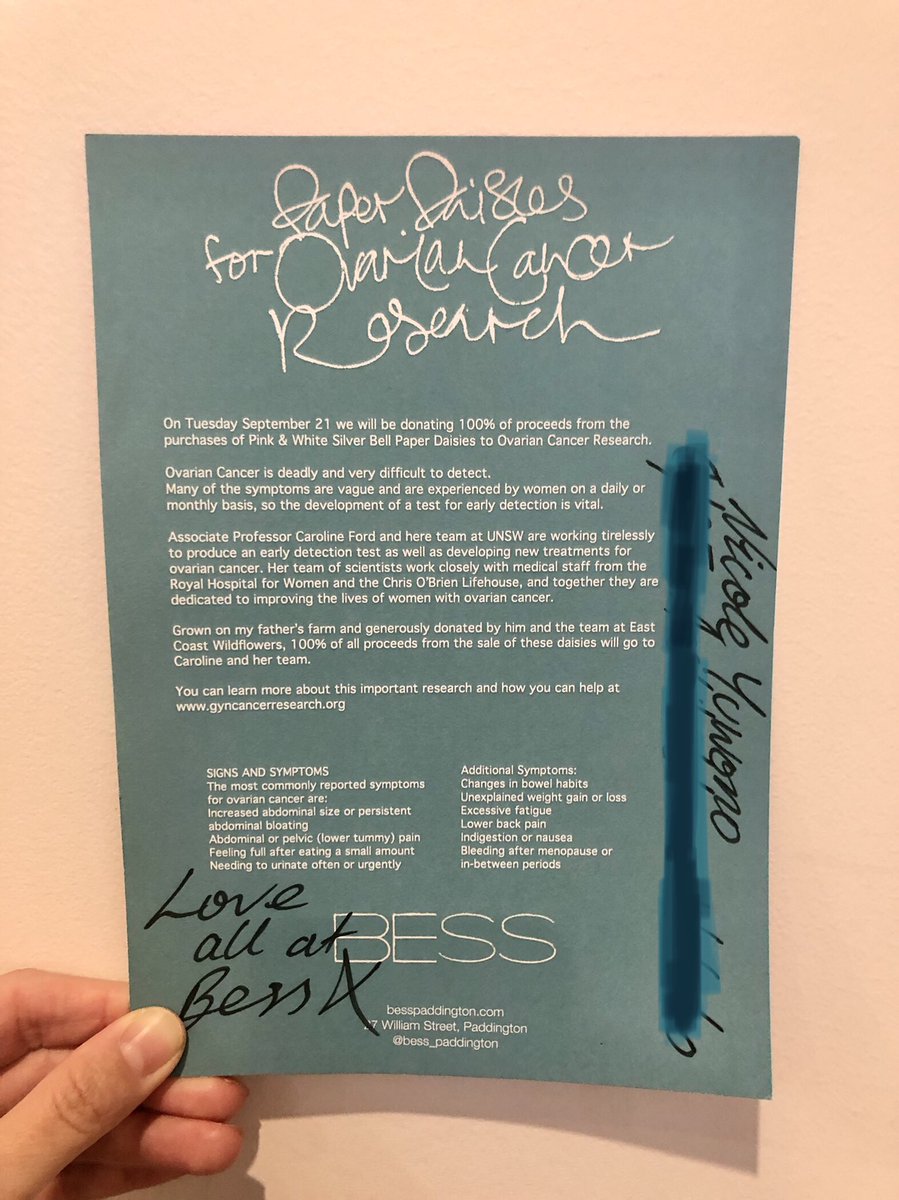 Paper Daisies
for Ovarian Cancer
Research
On Tuesday September 21 we will be donating 100% of proceeds from the
purchases of Pink & White Silver Bell Paper Daisies to Ovarian Cancer Research.
Ovarian Cancer is deadly and very difficult to detect.
Many of the symptoms are vague and are experienced by women on a daily or
monthly basis, so the development of a test for early detection is vital.
Associate Professor Caroline Ford and here team at UNSW are working tirelessly
to produce an early detection test as well as developing new treatments for
ovarian cancer. Her team of scientists work closely with medical staff from the
Royal Hospital for Women and the Chris O'Brien Lifehouse, and together they are
dedicated to improving the lives of women with ovarian cancer.
Grown on my father's farm and generously donated by him and the team at East
Coast Wildflowers, 100% of all proceeds from the sale of these daisies will go to
Caroline and her team.
You can learn more about this important research and how you can help at
www.gyncancerresearch.org
SIGNS AND SYMPTOMS
The most commonly reported symptoms
for ovarian cancer are:
Increased abdominal size or persistent
abdominal bloating
Abdominal or pelvic (lower tummy) pain
Feeling full after eating a small amount
Needing to urinate often or urgently
Additional Symptoms:
Changes in bowel habits
Unexplained weight gain or loss
Excessive fatigue
Lower back pain
Indigestion or nausea
Bleeding after menopause or
in-between periods
Nicole Yuwono
Love
all at
Bess X
BESS
besspaddington.com
William Street, Paddington
@bess_paddington